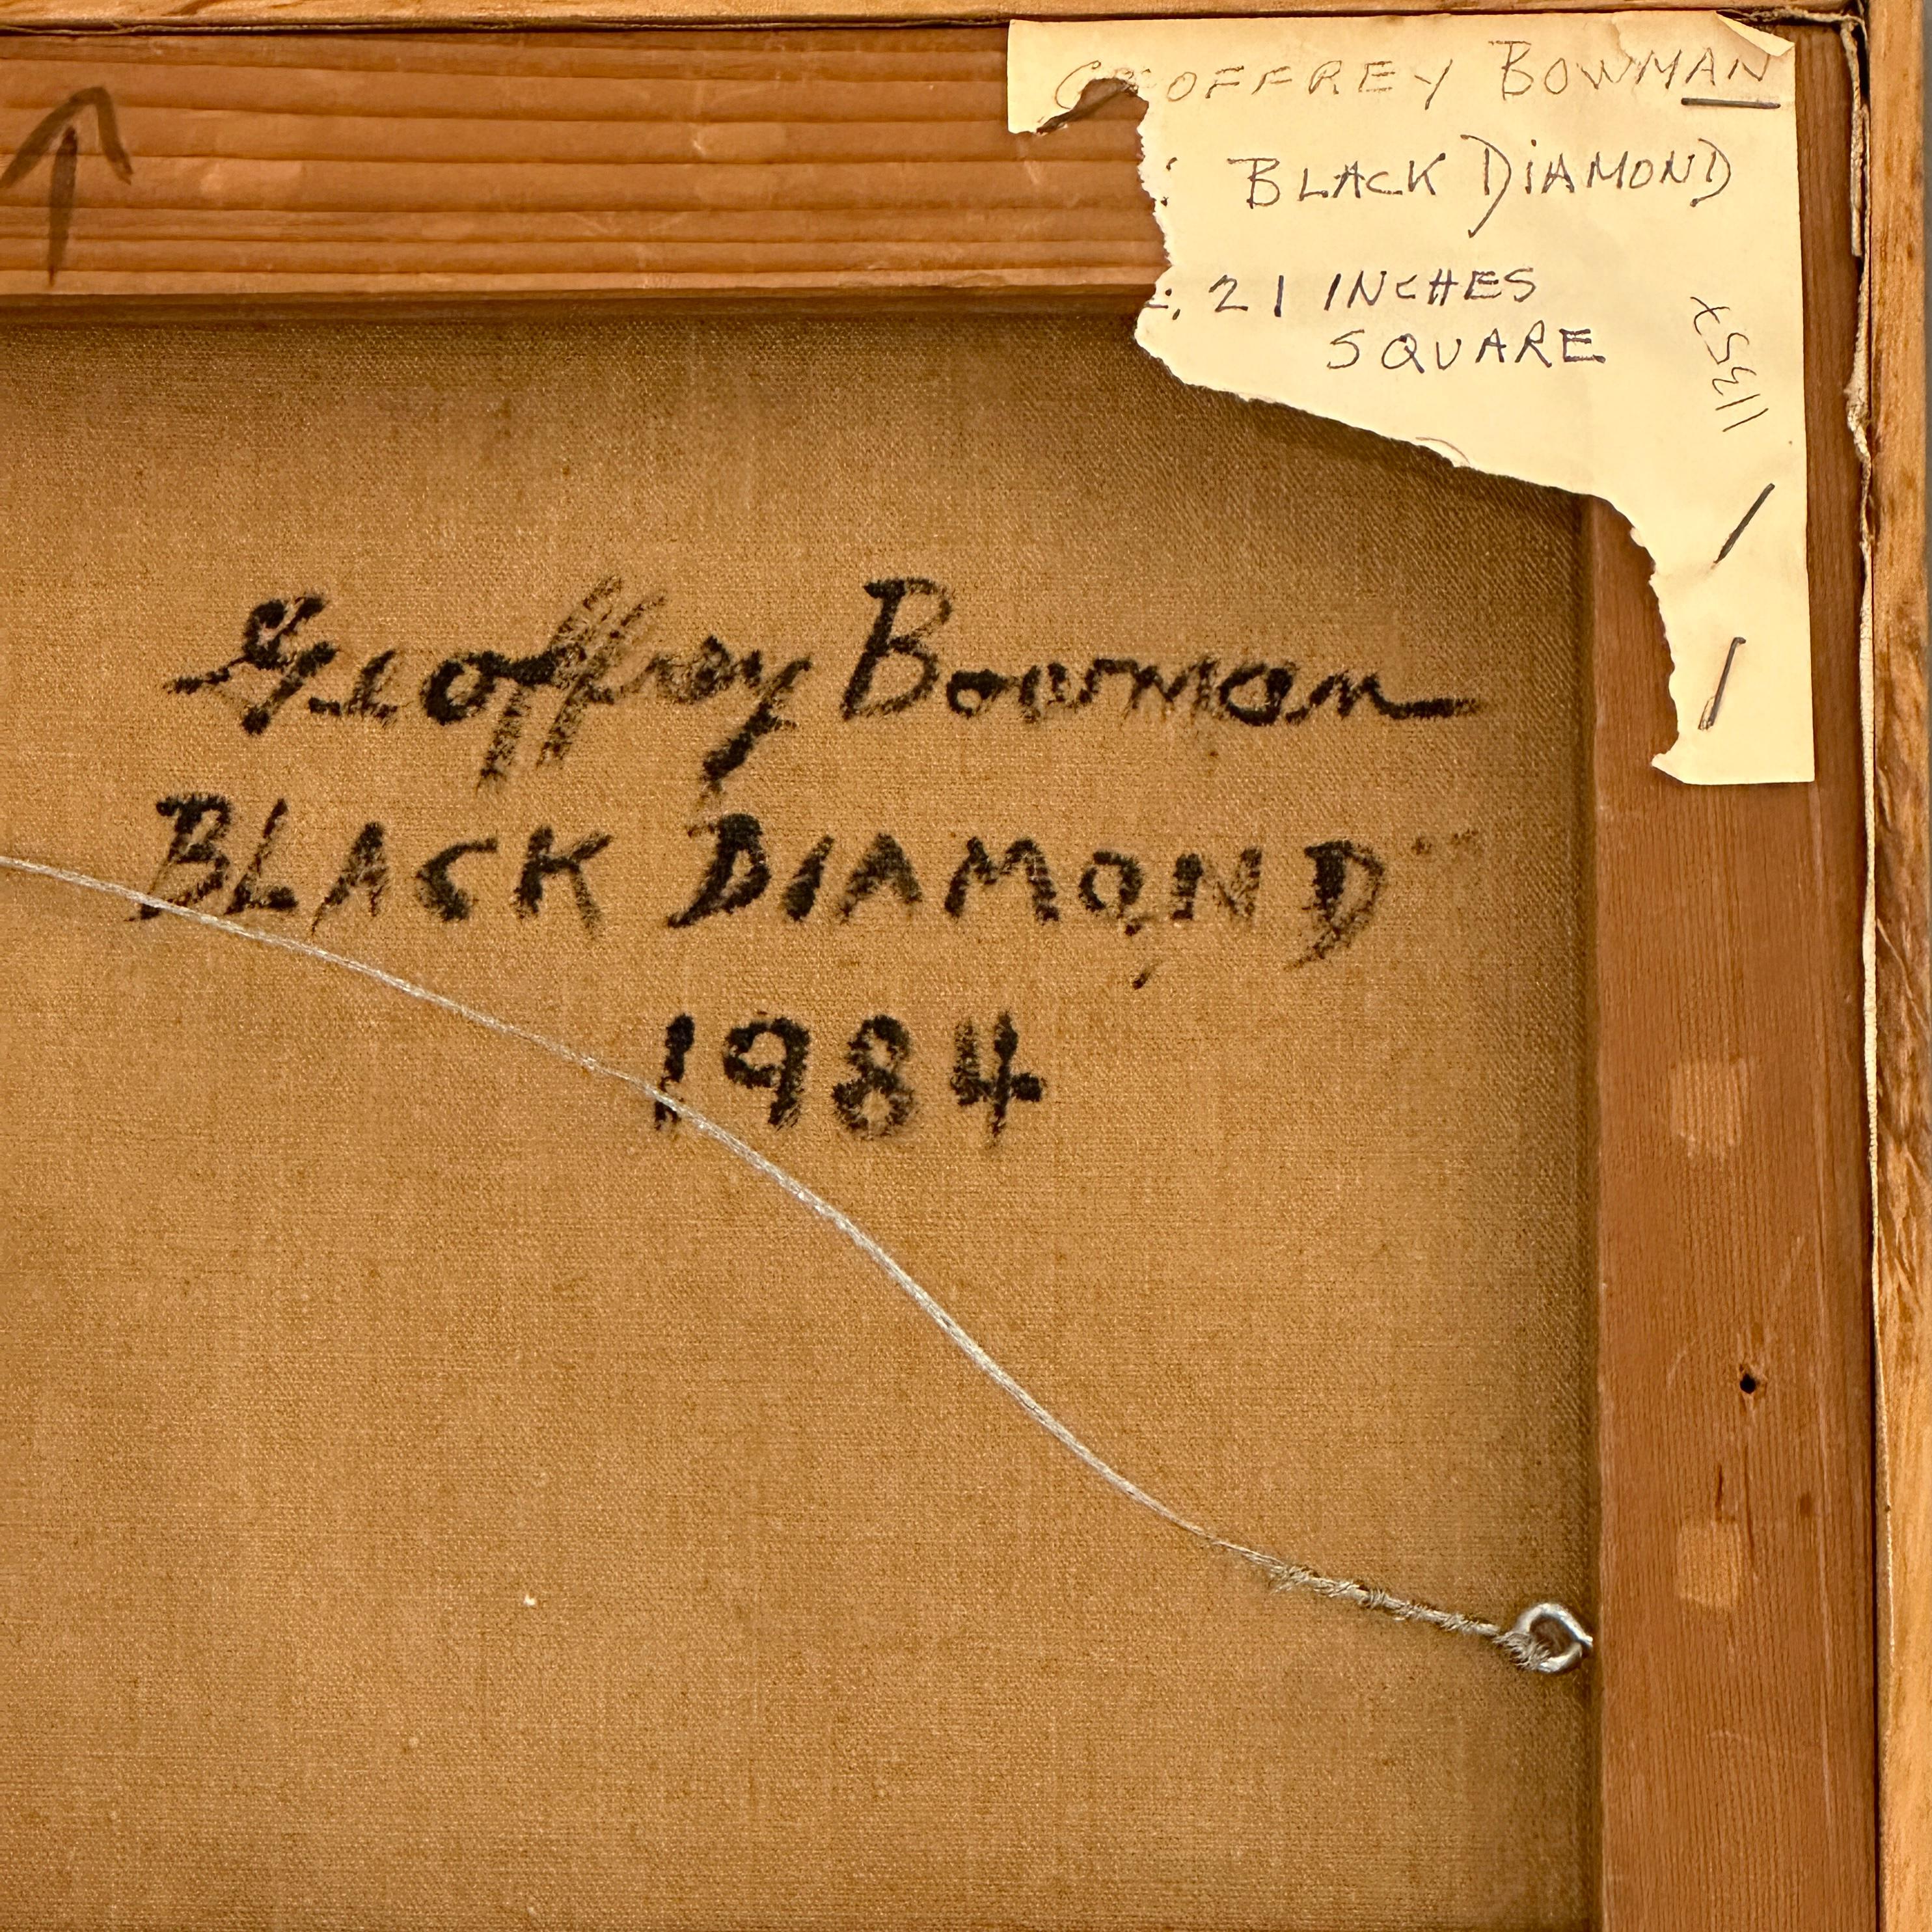 GEOFFREY BOWMAN
: BLACK DIAMOND
: 21 INCHES
SQUARE
Geoffrey Bowman
BLACK DIAMOND
1984